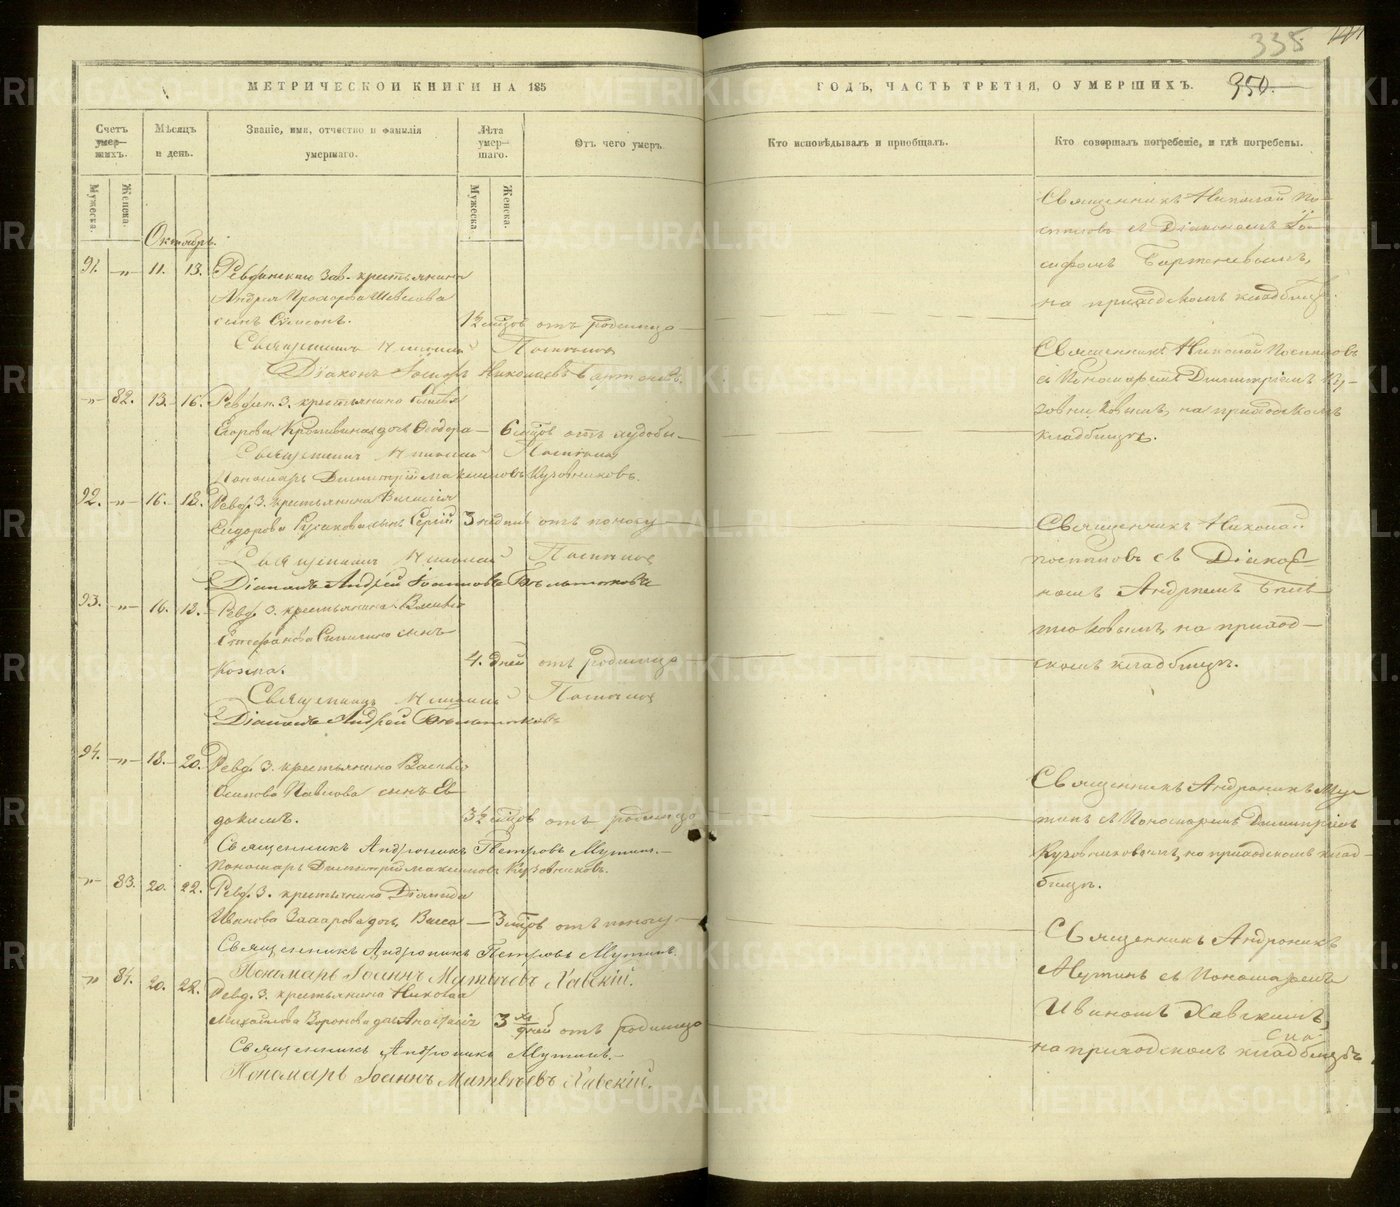 335
950.
МЕТРИЧЕСКОЙ КНИГИ НА 185
ГОДЪ, ЧАСТЬ ТРЕТІЯ, О УМЕРШИХЪ.
Счетъ умер-шихъ.
Мужеска.
Женска.
Мѣсяцъ и день.
Званіе, имя, отчество и фамилія умершаго.
Лѣта умер-шаго.
Мужеска.
Женска.
Отъ чего умеръ.
Кто исповѣдывалъ и пріобщалъ.
Кто совершалъ погребеніе, и гдѣ погребены.
Октябрь.
91. -„- 11. 13. Ревдинскаго зав. крестьянина
Андрея Прохорова Шевелова
сынъ Симеонъ. 1½ мѣсцов отъ родимца
Священникъ Николай Поспѣловъ
Діаконъ Іосифъ Николаевъ
Священникъ Николай По-
спѣловъ съ Діакономъ Іо-
сифомъ
на приходскомъ кладбищѣ.
-„- 82. 13. 16. Ревдин. З. крестьянина
Егорова дочь Ѳеодора 6 мѣсцов отъ худобы
Священникъ Николай Поспѣловъ
Пономарь Димитрій Максимовъ Кузовниковъ.
Священникъ Николай Поспѣловъ
съ Пономаремъ Димитріемъ Ку-
зовниковымъ, на приходскомъ
кладбищѣ.
92. -„- 16. 18. Ревд. З. крестьянина Василія
Сидорова Русакова сынъ Сергій 3 недѣль отъ поносу
Священникъ Николай Поспѣловъ
Діаконъ Андрей Іоанновъ Бѣльтюковъ
Священникъ Николай
Поспѣловъ съ Діако-
номъ Андреемъ Бѣль-
тюковымъ, на приход-
скомъ кладбищѣ.
93. -„- 16. 18. Ревд. З. крестьянина
Стефанова сынъ
Козма. 4. дней отъ родимца
Священникъ Николай Поспѣловъ
Діаконъ Андрей Бѣльтюковъ
94. -„- 18. 20. Ревд. З. крестьянина
Осипова Павлова сынъ Ев-
докимъ. 3½ мѣсцов отъ родимца
Священникъ Андроникъ Петровъ Мутинъ.
Пономарь Димитрій Максимовъ Кузовниковъ.
Священникъ Андроникъ Му-
тинъ съ Пономаремъ Димитріемъ
Кузовниковымъ, на приходскомъ клад-
бищѣ.
-„- 83. 20. 22. Ревд. З. крестьянина
Иванова Захарова дочь Васса 3 мѣсцов отъ
Священникъ Андроникъ Петровъ Мутинъ.
Пономарь Іоаннъ Матвѣевъ Хавскій.
-„- 84. 20. 22. Ревд. З. крестьянина Николая
Михайлова Воронова дочь Анастасія 3 дней отъ родимца
Священникъ Андроникъ Мутинъ.
Пономарь Іоаннъ Матвѣевъ Хавскій.
Священникъ Андроникъ
Мутинъ съ Пономаремъ
Иваномъ Хавскимъ,
на приходскомъ кладбищѣ
METRIKI.GASO-URAL.RU